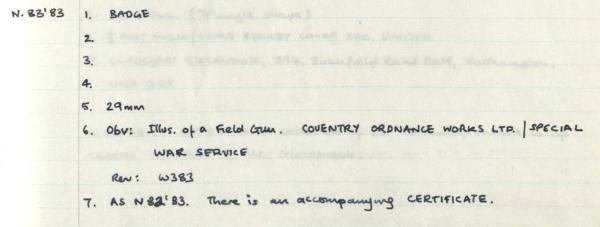 N.83'83 1. BADGE
2.
3.
4.
5. 29mm
6. Obv: Illus. of a Field Gun. COVENTRY ORDNANCE WORKS LTD. | SPECIAL
WAR SERVICE
Rev: W383
7. AS N82'83. There is an accompanying CERTIFICATE.